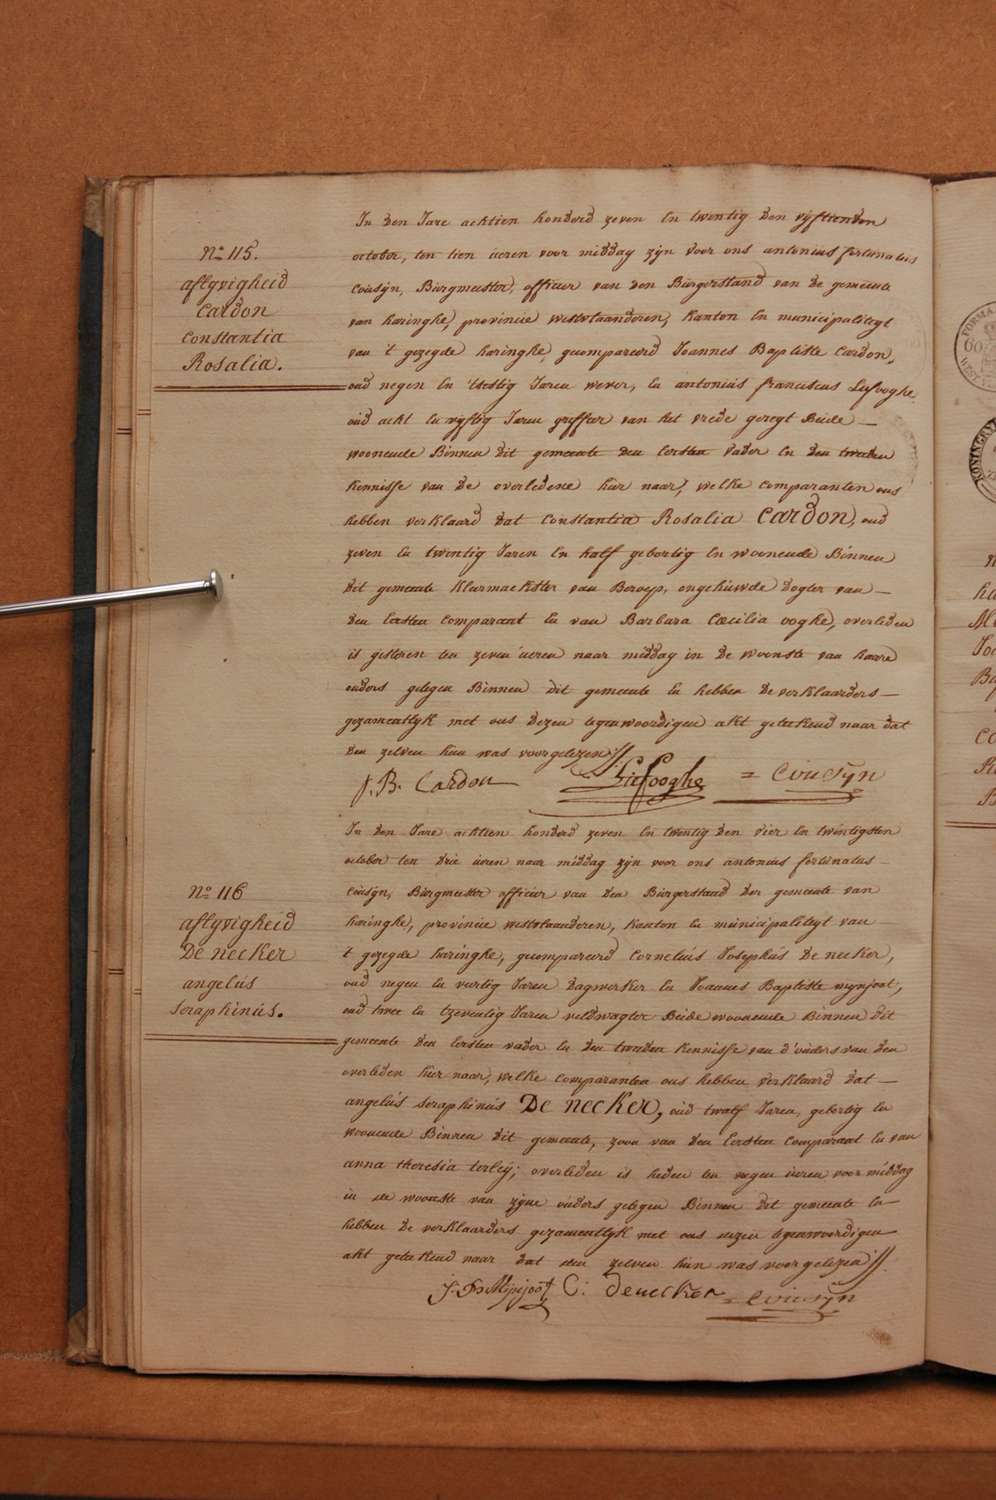 N° 115.
aflyvigheid
Cardon
Constantia
Rosalia.
In den Jare achtien honderd zeven en twentig den vyftienden
october, ten tien ueren voor middag zyn voor ons antonius fortunatus
Cousyn, Burgmeester, officier van den Burgerstand van de gemeente
van haringhe, provincie westvlaanderen, kanton en municipaliteyt
van 't gezegde haringhe, gecompareerd Joannes Baptiste Cardon,
oud negen en tsestig Jaren wever, en antonius franciscus Liefooghe
oud acht en vyftig Jaren griffier van het vrede geregt Beide
woonende Binnen dit gemeente den Eersten vader en den tweeden
kennisse van de overledene hier naar, welke comparanten ons
hebben verklaard dat Constantia Rosalia Cardon, oud
zeven en twentig Jaren en half gebortig en woonende Binnen
dit gemeente kleermaekster van Beroep, ongehuwde dogter van
den Eersten comparant en van Barbara Cæcilia ooghe, overleden
is gisteren ten zeven ueren naar middag in de woonste van haare
ouders gelegen Binnen dit gemeente en hebben de verklaarders
gezamentlyk met ons dezen tegenwoordigen akt geteekend naar dat
den zelven hun was voorgelezen //.
J. B. Cardon Liefooghe = Cousyn
N° 116
aflyvigheid
De necker
angelus
seraphinus.
In den Jare achtien honderd zeven en twentig den vier en twintigsten
october ten drie ueren naar middag zyn voor ons antonius fortunatus
Cousyn, Burgmeester officier van den Burgerstand der gemeente van
haringhe, provincie westvlaanderen, kanton en municipaliteyt van
't gezegde haringhe, gecompareerd Cornelius Josephus De necker,
oud negen en veertig Jaren dagwerker en Joannes Baptiste wynjoot,
oud twee en tzeventig Jaren veldwagter Beide woonende Binnen dit
gemeente den Eersten vader en den tweeden kennisse van d'ouders van den
overleden hier naar, welke comparanten ons hebben verklaard dat
angelus seraphinus De necker, oud twalf Jaren, gebortig en
woonende Binnen dit gemeente, zoon van den Eersten comparant en van
anna theresia terley; overleden is heden ten negen ueren voor middag
in de woonste van zyne ouders gelegen Binnen dit gemeente en
hebben de verklaarders gezamentlyk met ons dezen tegenwoordigen
akt geteekend naar dat den zelven hun was voorgelezen //.
C: Denecker = Cousyn